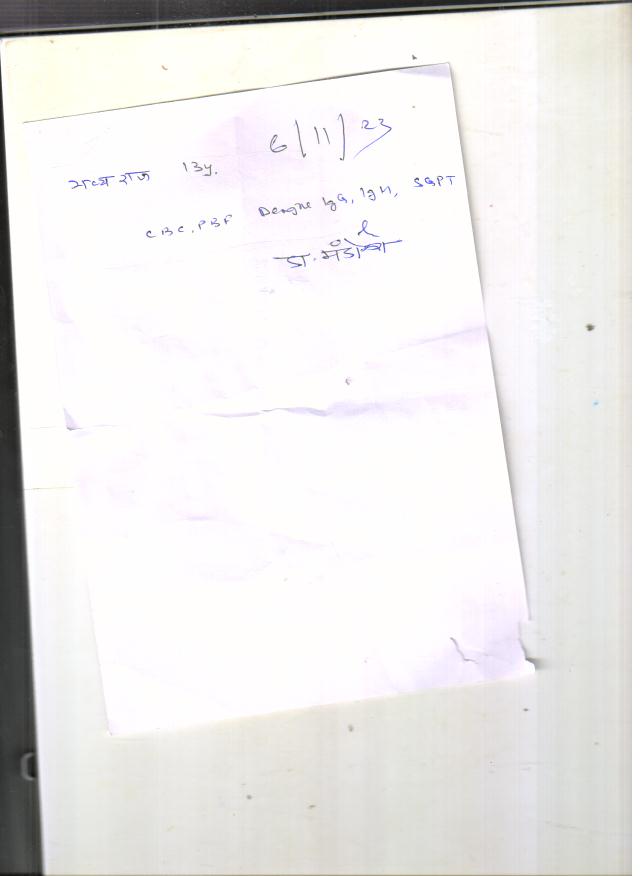 6/11/23
भव्य राज 13y.
CBC, PBF Dengue IgG, IgM, SGPT
डा.